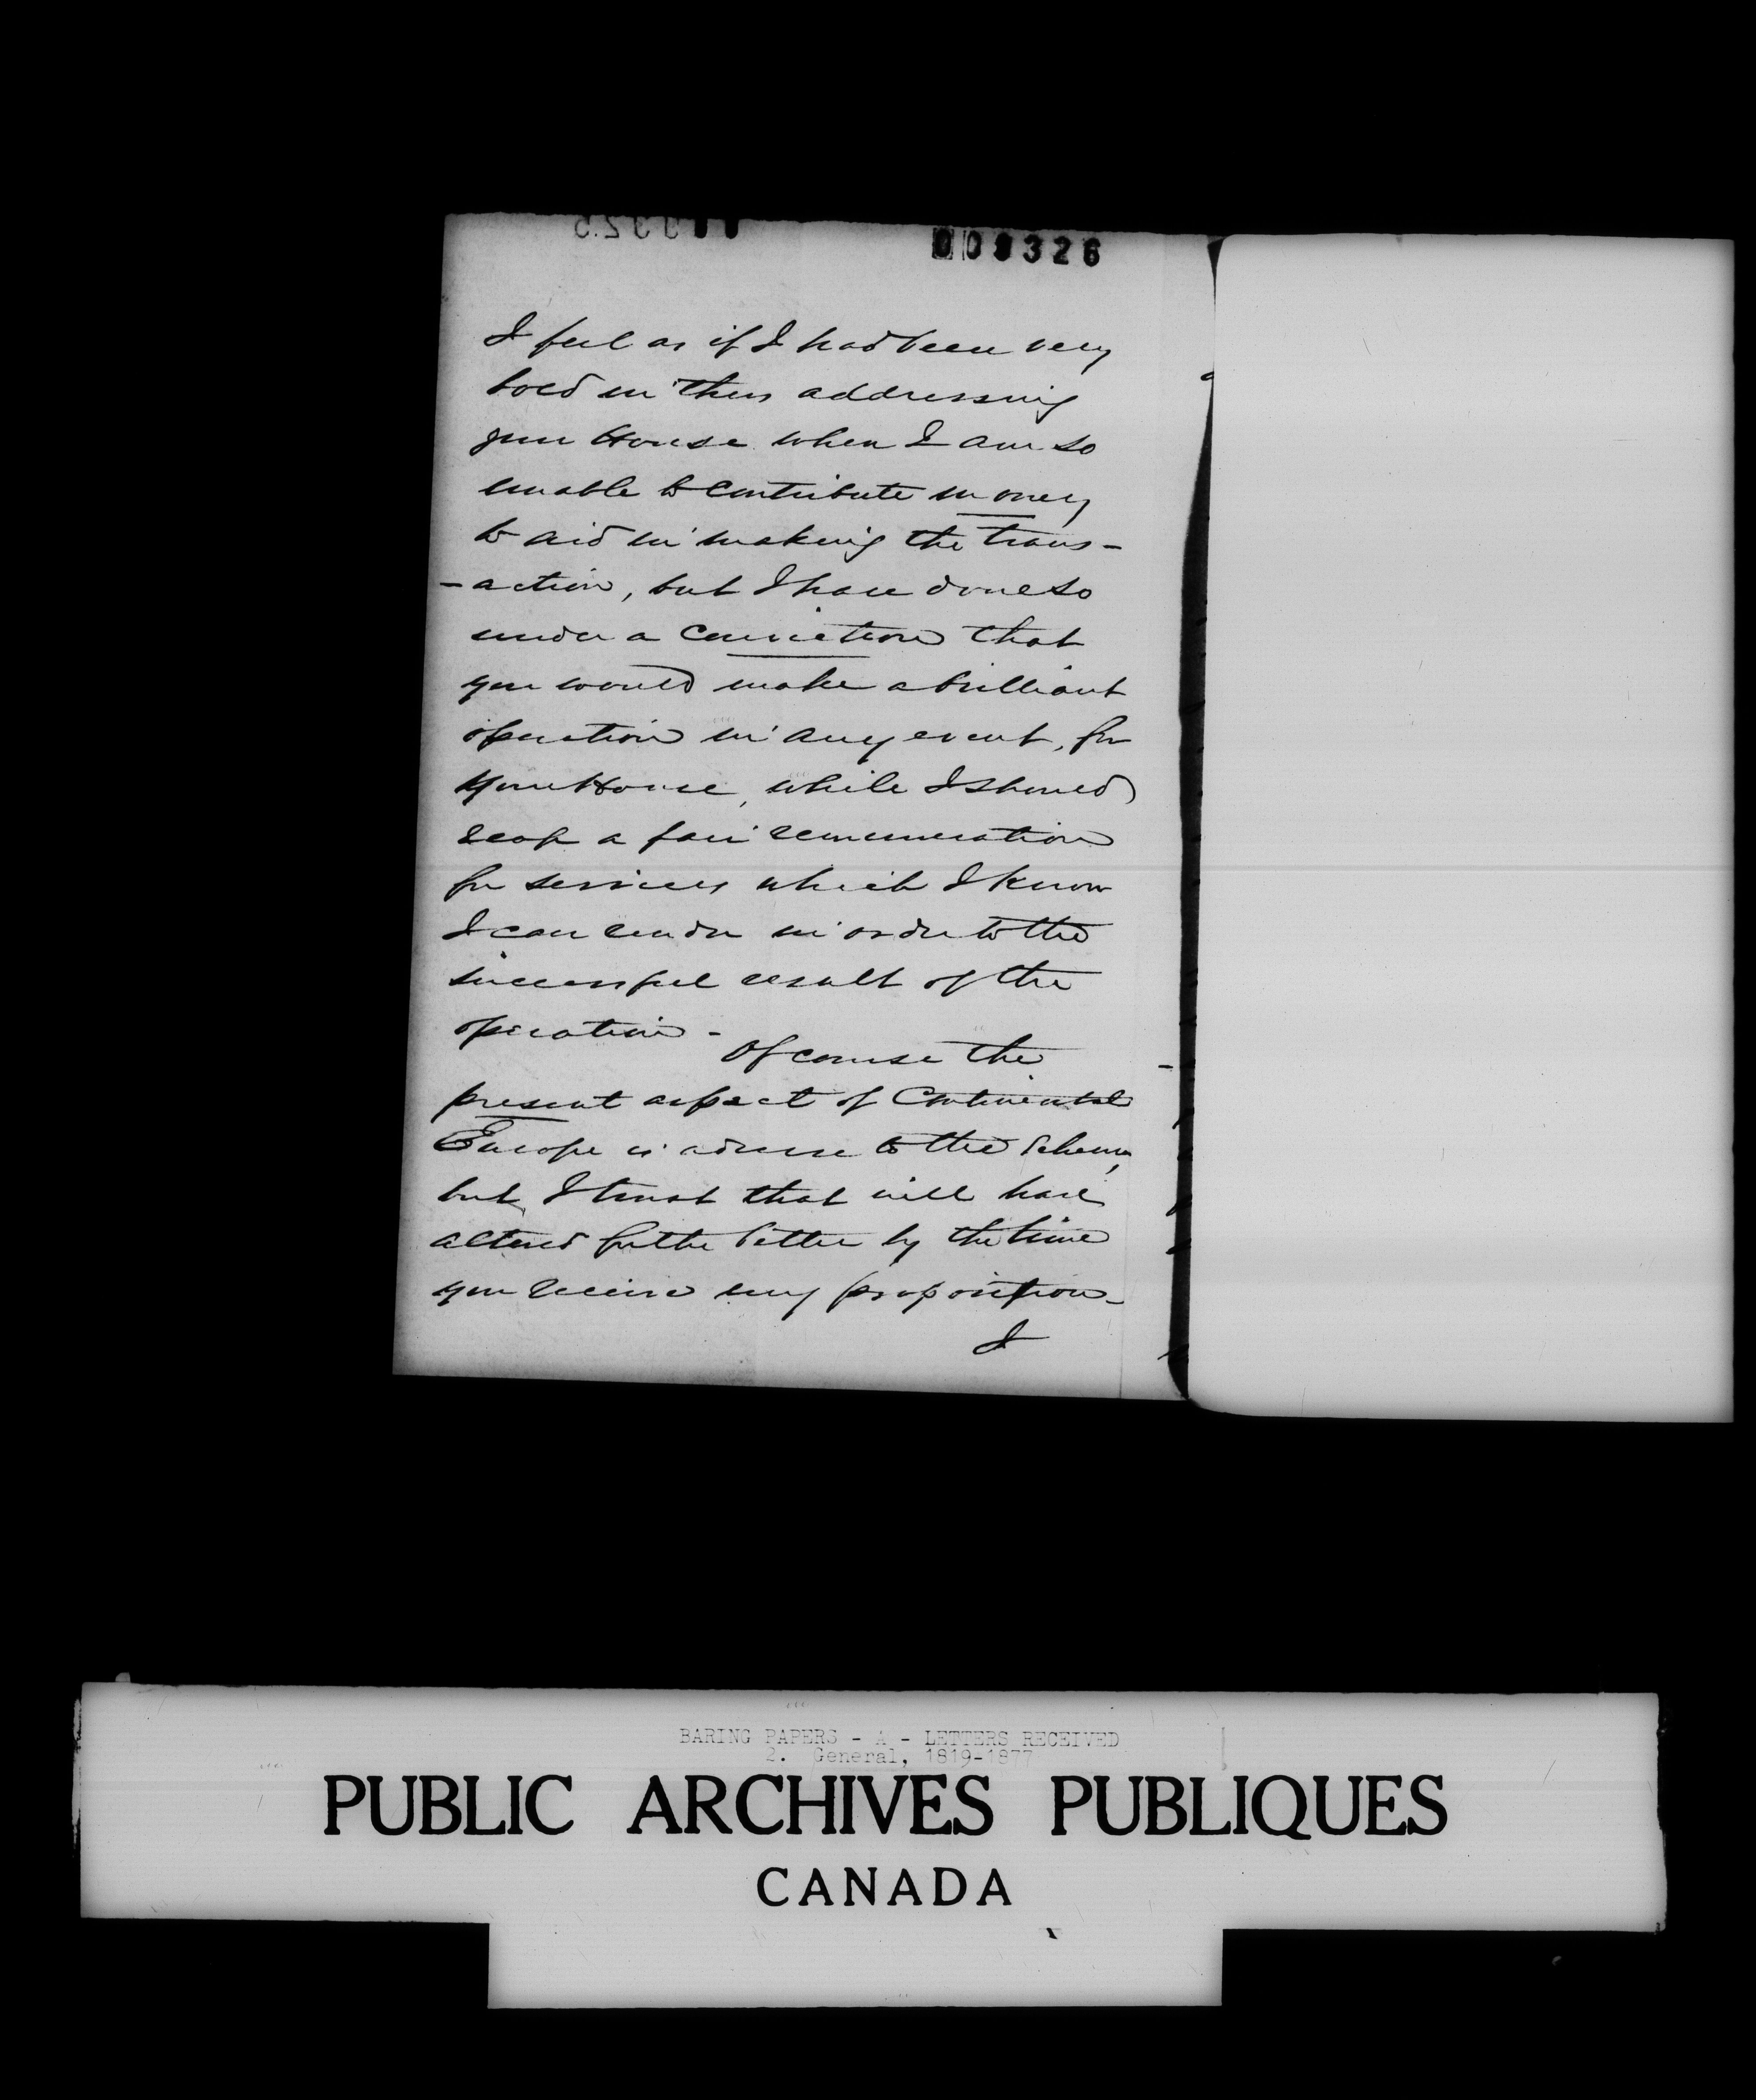 009326
I feel as if I had been very
bold in thus addressing
your House when I am so
unable to contribute money
to aid in making the trans-
-action, but I have done so
under a conviction that
you would make a brilliant
operation in any event, for
your House, while I should
reap a fair remuneration
for services which I know
I can render in order to the
successful result of the
operation -
Of course the
present aspect of Continental
Europe is adverse to the Scheme,
but I trust that will have
altered for the better by the time
you receive my proposition -
I
BARING PAPERS - A - LETTERS RECEIVED
2. General, 1819-1877
PUBLIC ARCHIVES PUBLIQUES
CANADA